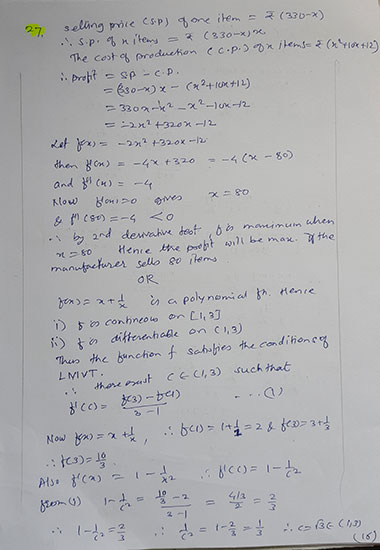 27. selling price (S.P) of one item = ₹ (330-x)
∴ S.P. of x items = ₹ (330-x)x
The cost of production (C.P.) of x items = ₹ (x²+10x+12)
∴ Profit = SP - C.P.
= (330-x)x - (x²+10x+12)
= 330x-x²-x²-10x-12
= -2x²+320x-12
Let f(x) = -2x²+320x-12
then f'(x) = -4x+320 = -4(x-80)
and f''(x) = -4
Now f'(x)=0 gives x=80
& f''(80)=-4 <0
∴ by 2nd derivative test, f is maximum when
x=80 Hence the profit will be max. if the
manufacturer sells 80 items.
OR
f(x) = x+1/x is a polynomial fn. Hence
i) f is continuous on [1,3]
ii) f is differentiable on (1,3)
Thus the function f satisfies the conditions of
LMVT.
∴ there exist C∈(1,3) such that
f'(c) = (f(3)-f(1))/(3-1) ---(1)
Now f(x) = x+1/x, ∴ f(1) = 1+1/1=2 & f(3)=3+1/3
∴ f(3)=10/3
Also f'(x) = 1-1/x² ∴ f'(c)=1-1/c²
from(1) 1-1/c² = (10/3-2)/(3-1) = (4/3)/2 = 2/3
∴ 1-1/c²=2/3 ∴ 1/c²=1-2/3=1/3 ∴ c=√3∈(1,3)
(18)